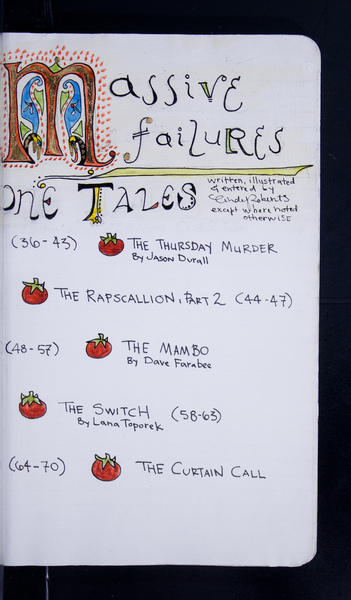 Massive
Failures
one Tales
written, illustrated
& entered by
Cindy Roberts
except where noted
otherwise
(36-43) The Thursday Murder
By Jason Durall
The Rapscallion, Part 2 (44-47)
(48-57) The Mambo
By Dave Farabee
The Switch (58-63)
By Lana Toporek
(64-70) The Curtain Call